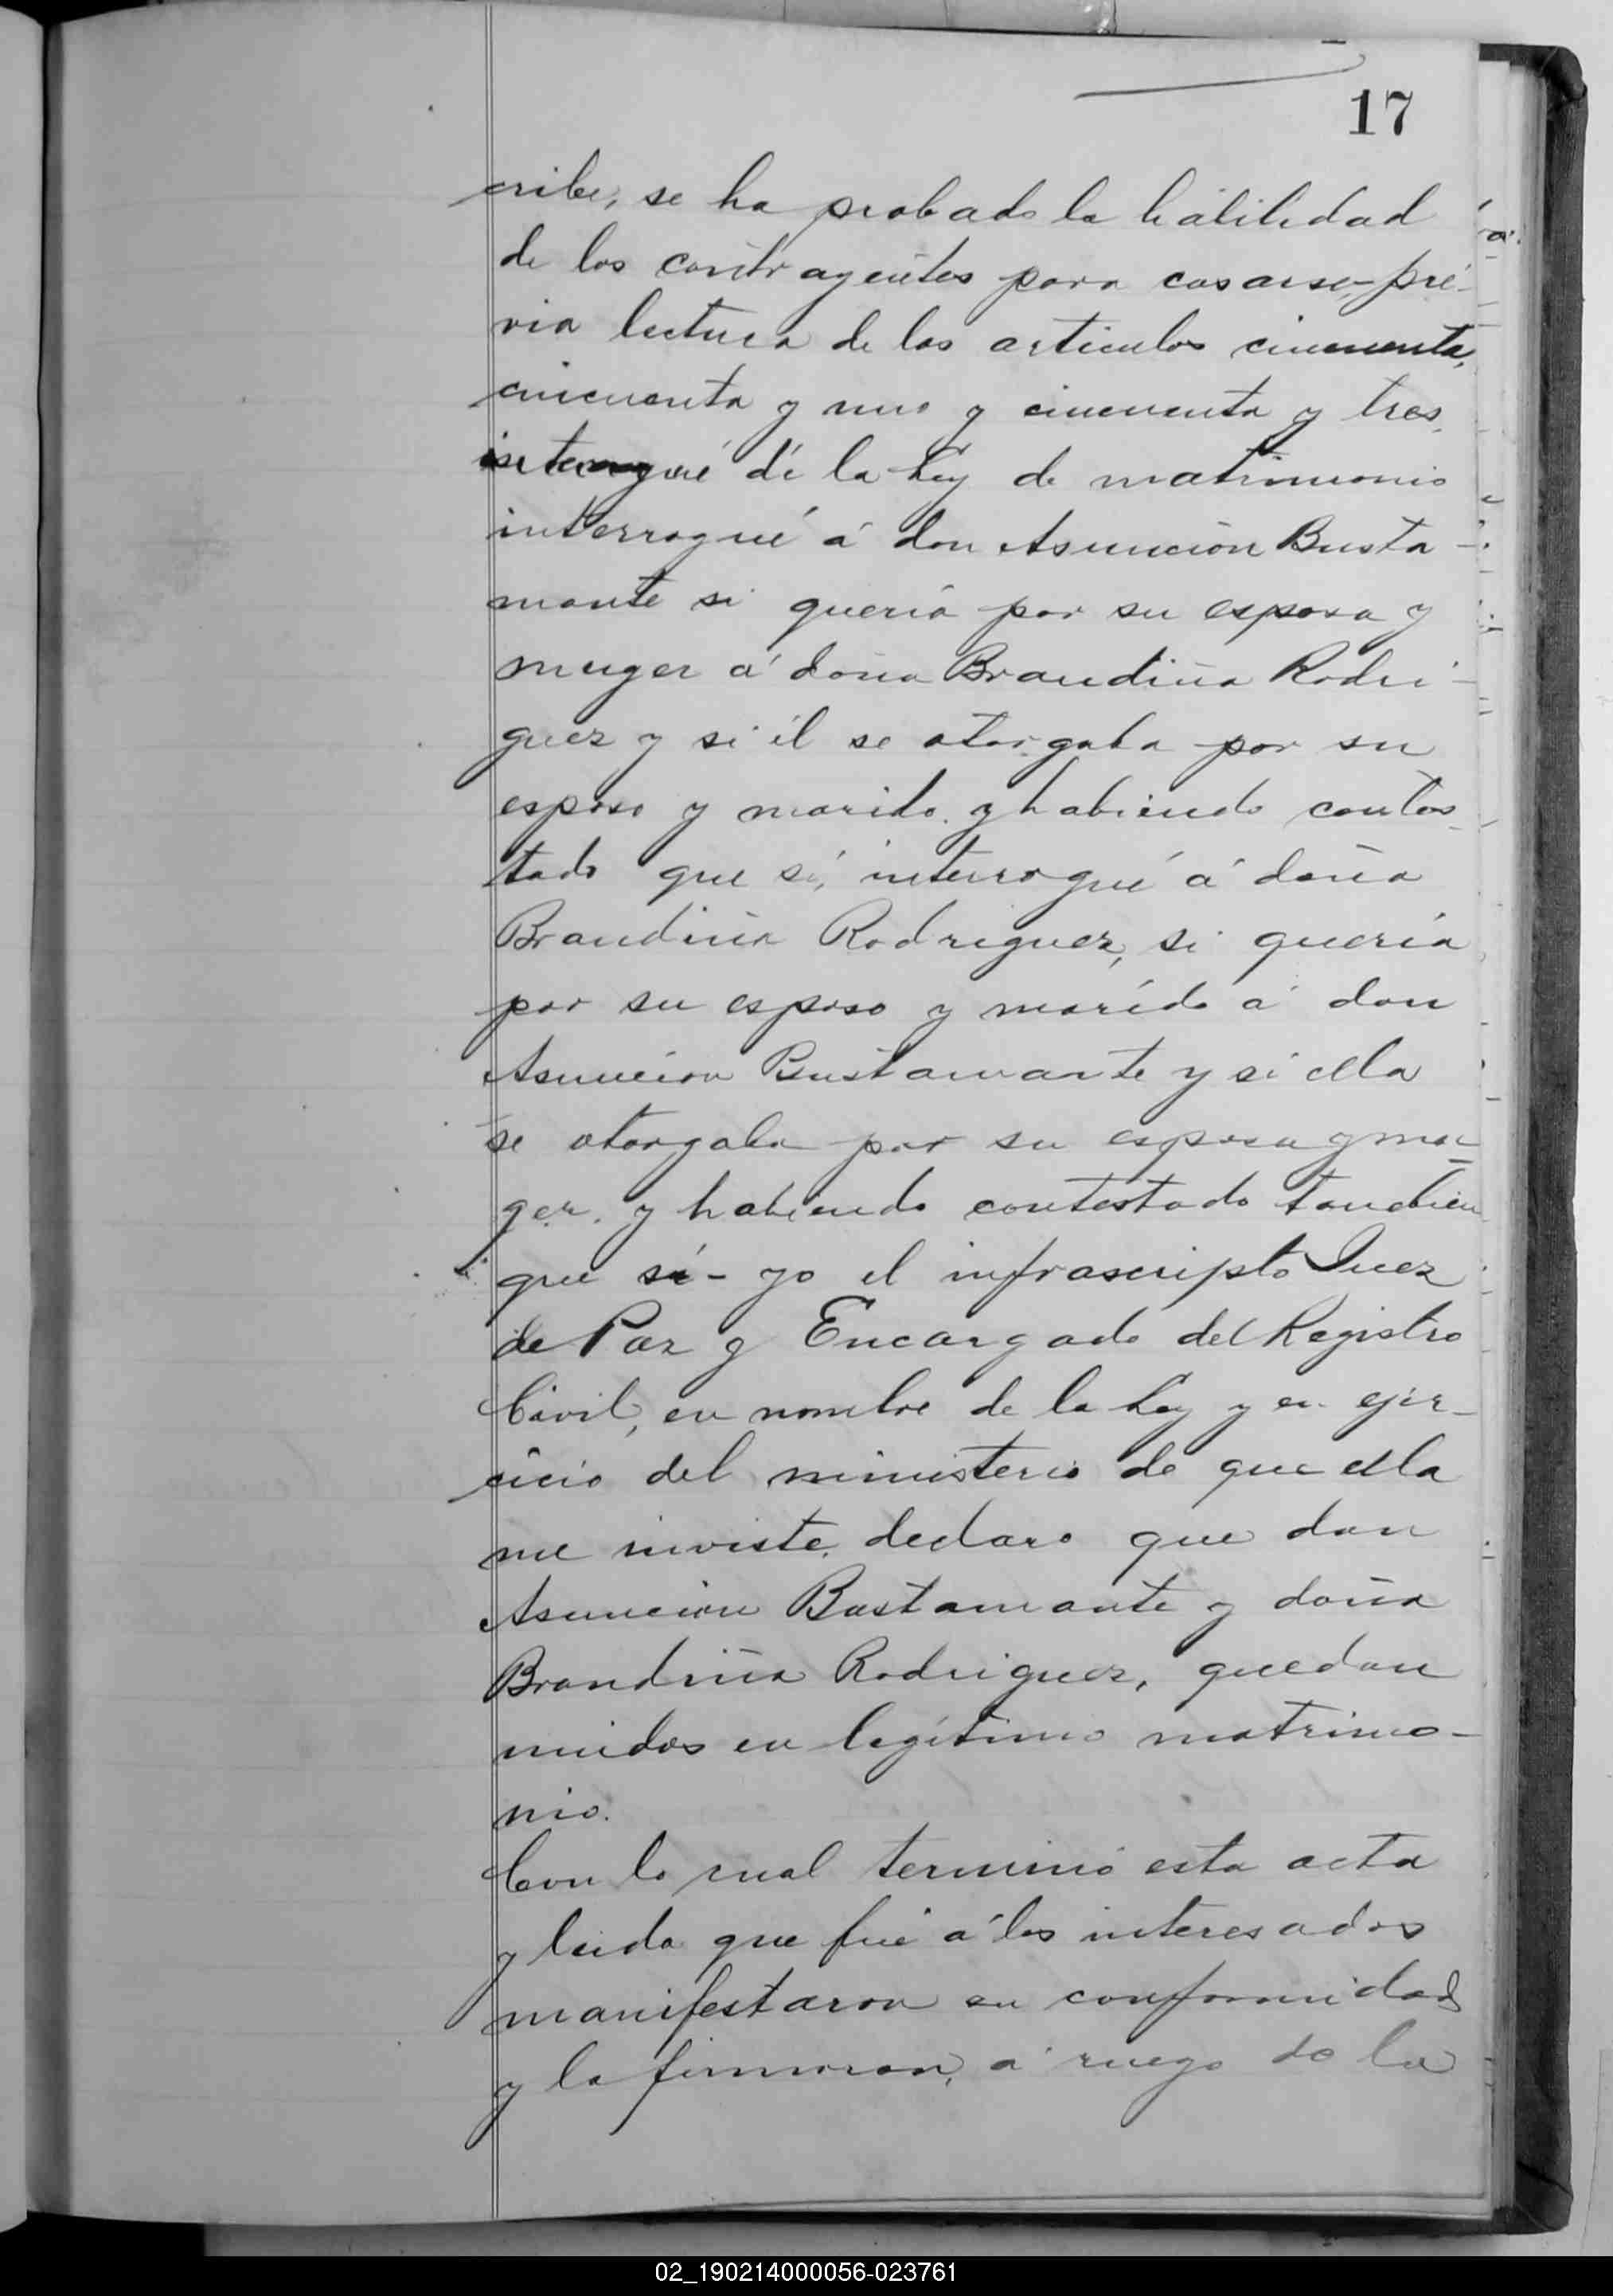 17
cribe, se ha probado la habilidad
de los contrayentes para casarse, pré-
via lectura de los articulos cincuenta,
cincuenta y uno y cincuenta y tres
de la Ley de matrimonio
interrogué á don Asuncion Busta-
mante si queria por su esposa y
muger á doña Brandina Rodri-
guez y si él se otorgaba por su
esposo y marido y habiendo contes-
tado que sí, interrogué á doña
Brandina Rodriguez, si queria
por su esposo y marido á don
Asuncion Bustamante y si ella
se otorgaba por su esposa y mu-
ger. y habiendo contestado tambien
que sí - yo el infrascripto Juez
de Paz y Encargado del Registro
Civil, en nombre de la Ley y en ejer-
cicio del ministerio de que ella
me inviste, declaro que don
Asuncion Bustamante y doña
Brandina Rodriguez, quedan
unidos en legítimo matrimo-
nio.
Con lo cual terminó esta acta
y leida que fué á los interesados
manifestaron su conformidad
y la firmaron, á ruego de la
02_190214000056-023761